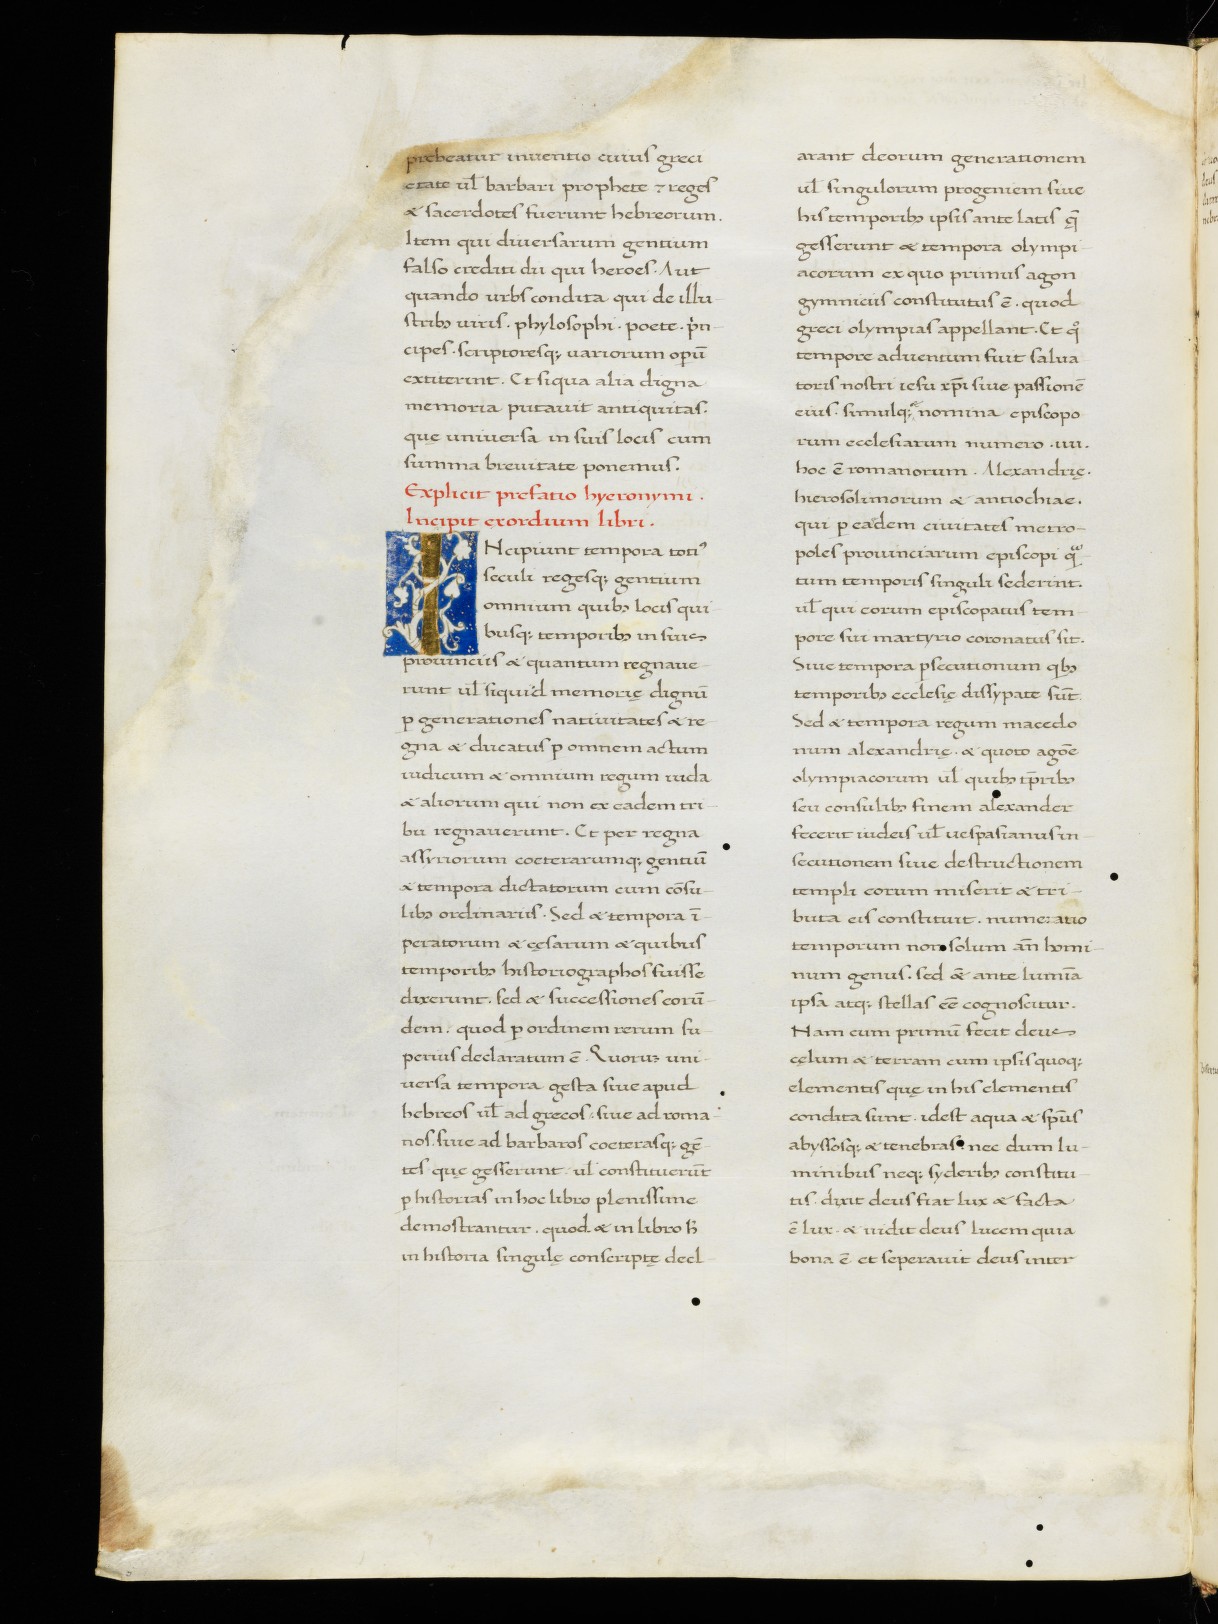 prebeatur inuentio cuius greci
etate ul̄ barbari prophete ⁊ reges
& sacerdotes fuerunt hebreorum.
Item qui diuersarum gentium
falso crediti dii qui heroes. Aut
quando urbs condita qui de illu-
strib; uiris. phylosophi. poete. prin-
cipes. scriptoresq; uariorum operū
extiterint. Et siqua alia digna
memoria putauit antiquitas.
quę uniuersa in suis locis cum
summa breuitate ponemus.
Explicit prefatio hyeronymi.
Incipit exordium libri.
INcipiunt tempora totiꝰ
seculi regesq; gentium
omnium quib; locis qui
busq; temporib; in suis
prouinciis & quantum regnaue-
runt ul̄ siquid memorię dignū
ꝑ generationes natiuitates & re-
gna & ducatus ꝑ omnem actum
iudicum & omnium regum iuda
& aliorum qui non ex eadem tri-
bu regnauerunt. Et per regna
assyriorum coeterarumq; gentiū
& tempora dictatorum cum cōsu-
lib; ordinariis. Sed & tempora ī-
peratorum & cęsarum & quibus
temporib; historiographos fuisse
dixerunt. sed & successiones eorū-
dem. quod ꝑ ordinem rerum su-
perius declaratum ē. Quorum uni-
uersa tempora gesta siue apud
hebreos ul̄ ad grecos. siue ad roma-
nos. siue ad barbaros coeterasq; gē-
tes quę gesserunt. ul̄ constituerūt
ꝑ historias in hoc libro plenissime
demostrantur. quod & in libro
in historia singulę conscriptę decl-
arant deorum generationem
ul̄ singulorum progeniem siue
his temporib; ipsis ante latis quę
gesserunt & tempora olympi-
acorum ex quo primus agon
gymnicus constitutus ē. quod
greci olympias appellant. Et qͦ
tempore aduentum fuit salua
toris nostri iesu xp̄i siue passionē
eius. simulq; & nomina episcopo
rum ecclesiarum numero .iiii.
hoc ē romanorum. Alexandrię.
hierosolimorum & antiochiae.
qui ꝑ eadem ciuitates metro-
poles prouinciarum episcopi qͣ
tum temporis singuli sederint.
ul̄ qui eorum episcopatus tem-
pore sui martyrio coronatus sit.
Siue tempora ꝑsecutionum qb;
temporib; ecclesię dissypate sūt.
Sed & tempora regum macedo
num alexandrię. & quoto agōe
olympiacorum ul̄ quib; tp̄rib;
seu consulib; finem alexander
fecerit iudeis ul̄ uespasianus in-
secutionem siue destructionem
templi eorum miserit & tri-
buta eis constituit. numeratio
temporum non solum an̄ homi-
num genus. sed & ante lumīa
ipsa atq; stellas eē cognoscitur.
Nam cum primū fecit deus
cęlum & terram cum ipsis quoq;
elementis quę in his elementis
condita sunt. idest aqua & sp̄us
abyssosq; & tenebras nec dum lu-
minibus neq; syderib; constitu-
tis. dixit deus fiat lux & facta
ē lux. & uidit deus lucem quia
bona ē et seperauit deus inter